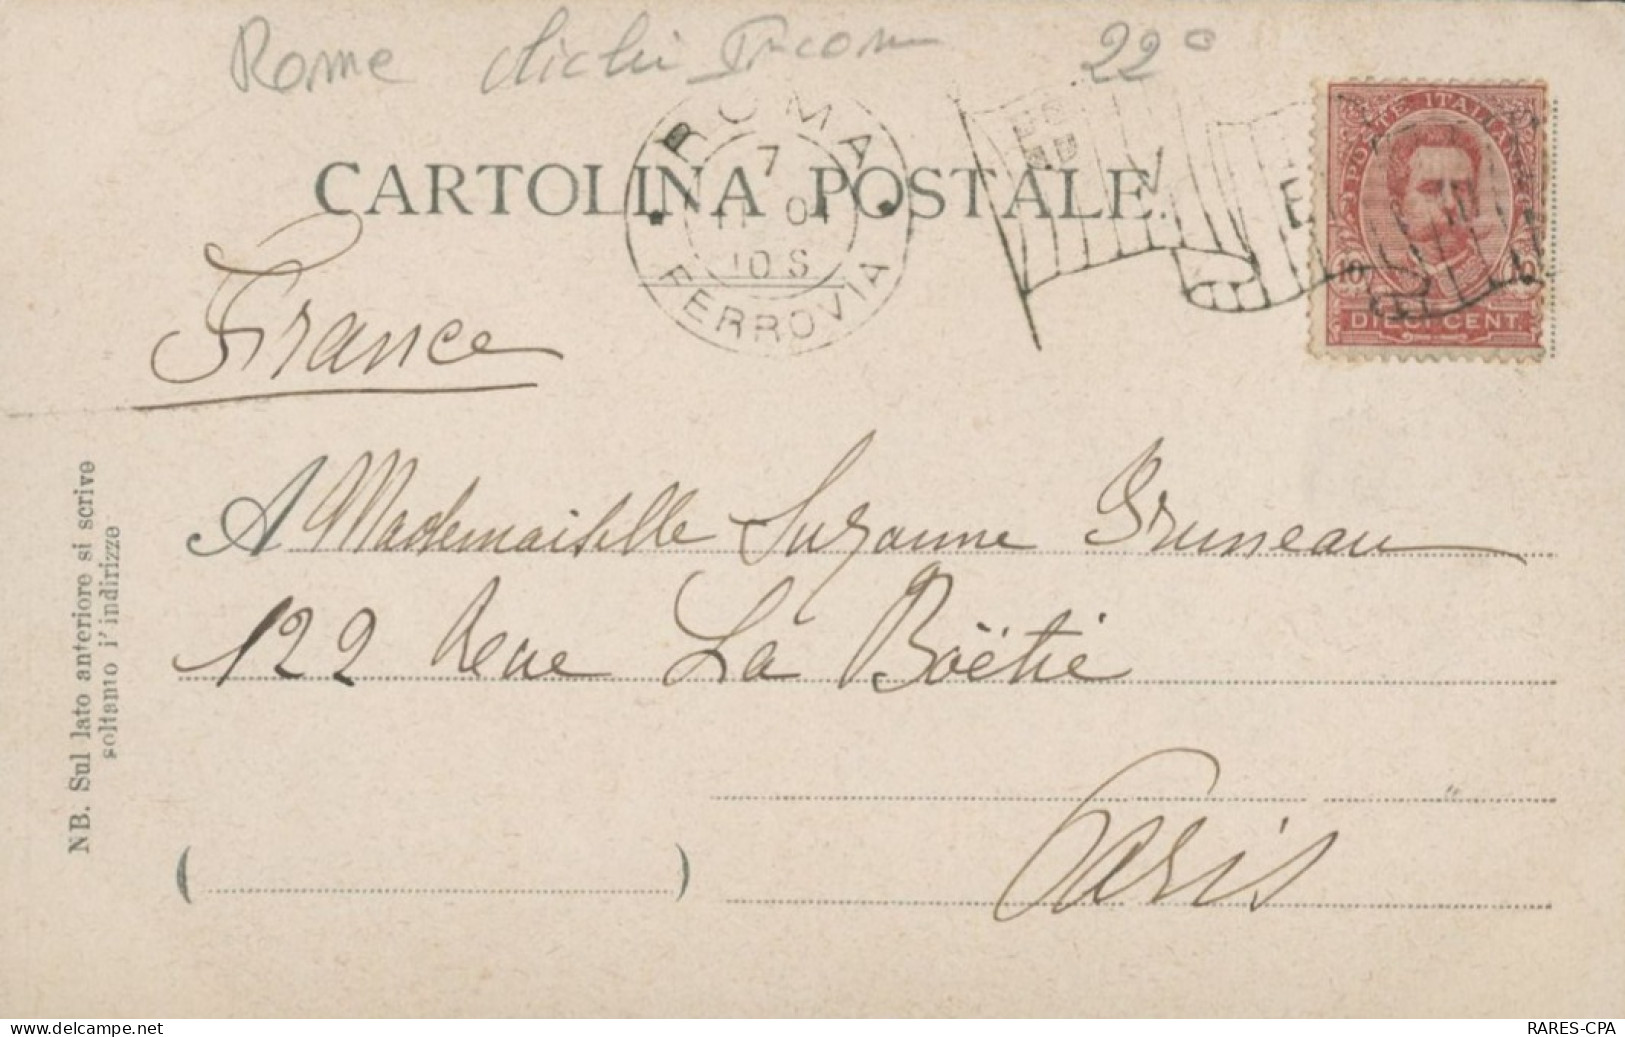 Rome 22
ROMA
7
11 01
10 S
FERROVIA
POSTE ITALIANE
10 10
DIECI CENT.
CARTOLINA POSTALE.
France
A Mademoiselle Suzanne Bruneau
122 Rue La Boëtie
Paris
( )
NB. Sul lato anteriore si scrive
soltanto l' indirizze
Visit our website: www.delcampe.net
RARES-CPA